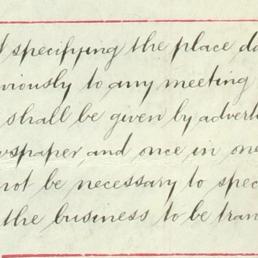 specifying the place da
viously to any meeting
shall be given by advert
wspaper and once in one
not be necessary to spec
the business to be tran